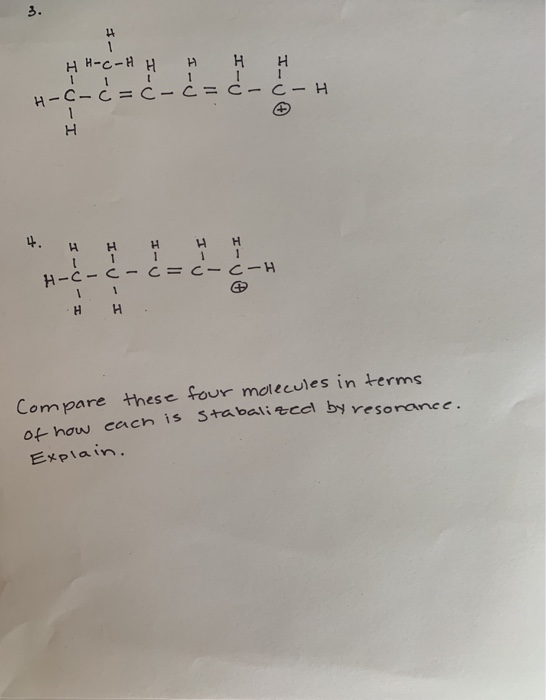 3.
H
H H-C-H H H H H
H-C-C=C-C=C-C-H
H ⊕
4. H H H H H
H-C-C-C=C-C-H
H H ⊕
Compare these four molecules in terms
of how each is stabalized by resonance.
Explain.